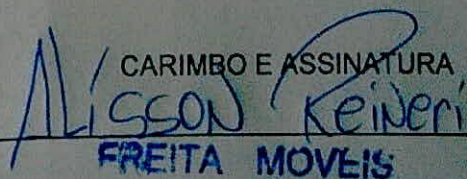 CARIMBO E ASSINATURA
Alisson Reineri
FREITA MÓVEIS